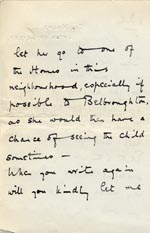 let he go to one of
the Homes in this
neighbourhood, especially if
possible to Belbroughton,
as she would then have a
chance of seeing the child
sometimes —
When you write again
will you kindly let me